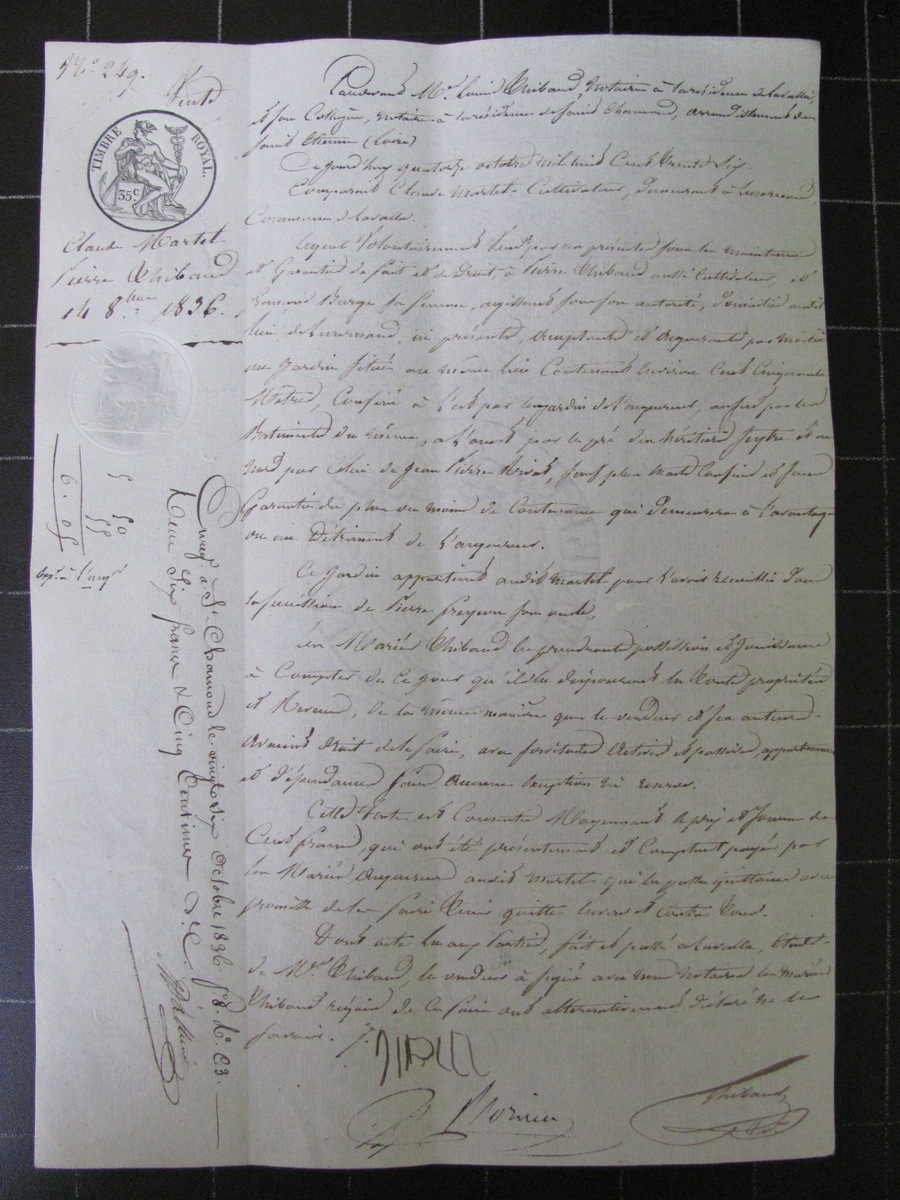 N.° 249.
Vente
TIMBRE ROYAL.
35.c
Claude Martet
Pierre Thibaud
14 8.bre 1836.
5 50
55
6.05
Pardevant M.e Louis Thibaud Notaire à la résidence de Lavalla,
et son Collègue, notaire à la résidence de Saint Chamond, arrondissement de
Saint Etienne (Loire)
Cejourd'huy quatorze octobre mil huit cent trente six,
Comparait Claude Martet Cultivateur, demeurant à
Commune de Lavalla.
Lequel Volontairement Vend par ces présentes sous la maintenue
et Garantie de fait et de droit à Pierre Thibaud aussi Cultivateur, et
Barge sa femme, agissant sous son autorité, domiciliés audit
lieu de , ici présents, acceptants et acquérants par moitié
un Jardin situé au même lieu Contenant environ Cent Cinquante
Mètres, Confiné à l'est par le jardin de l'acquéreur, au sud par les
Batiments du même, à l'ouest par le pré des héritiers et au
nord par celui de Jean Pierre , sauf plus vrais Confins et sans
Garantie du plus ou moins de Contenance qui demeurera à l'avantage
ou au Détriment de l'acquéreur.
Ce Jardin appartient audit Martet pour l'avoir recueilli dans
la succession de Pierre son oncle,
Les Mariés Thibaud en prendront possession et Jouissance
à Compter de ce jour qu'ils en disposeront en toute propriété
et , de la même manière que le vendeur et ses auteurs
avaient droit de le faire, avec servitudes actives et passives, appartenances
et dépendances sans aucune exception ni réserve.
Cette Vente est Consentie Moyennant le prix et somme de
Cent francs, qui ont été présentement et Comptant payés par
les Mariés acquéreurs audit Martet qui en passe quittance avec
promesse de les faire tenir quittes envers et contre tous.
Dont acte lu aux Parties, fait et passé à Lavalla, Etude
de M.e Thibaud, le vendeur a signé avec nous notaires les mariés
Thibaud requis de ce faire ont alternativement déclaré ne le
savoir.
Thibaud
Enreg. à St. Chamond le vingt six Octobre 1836 f.° 8. R.° C. 3.
Reçu Six francs & Cinq Centimes d.e C.